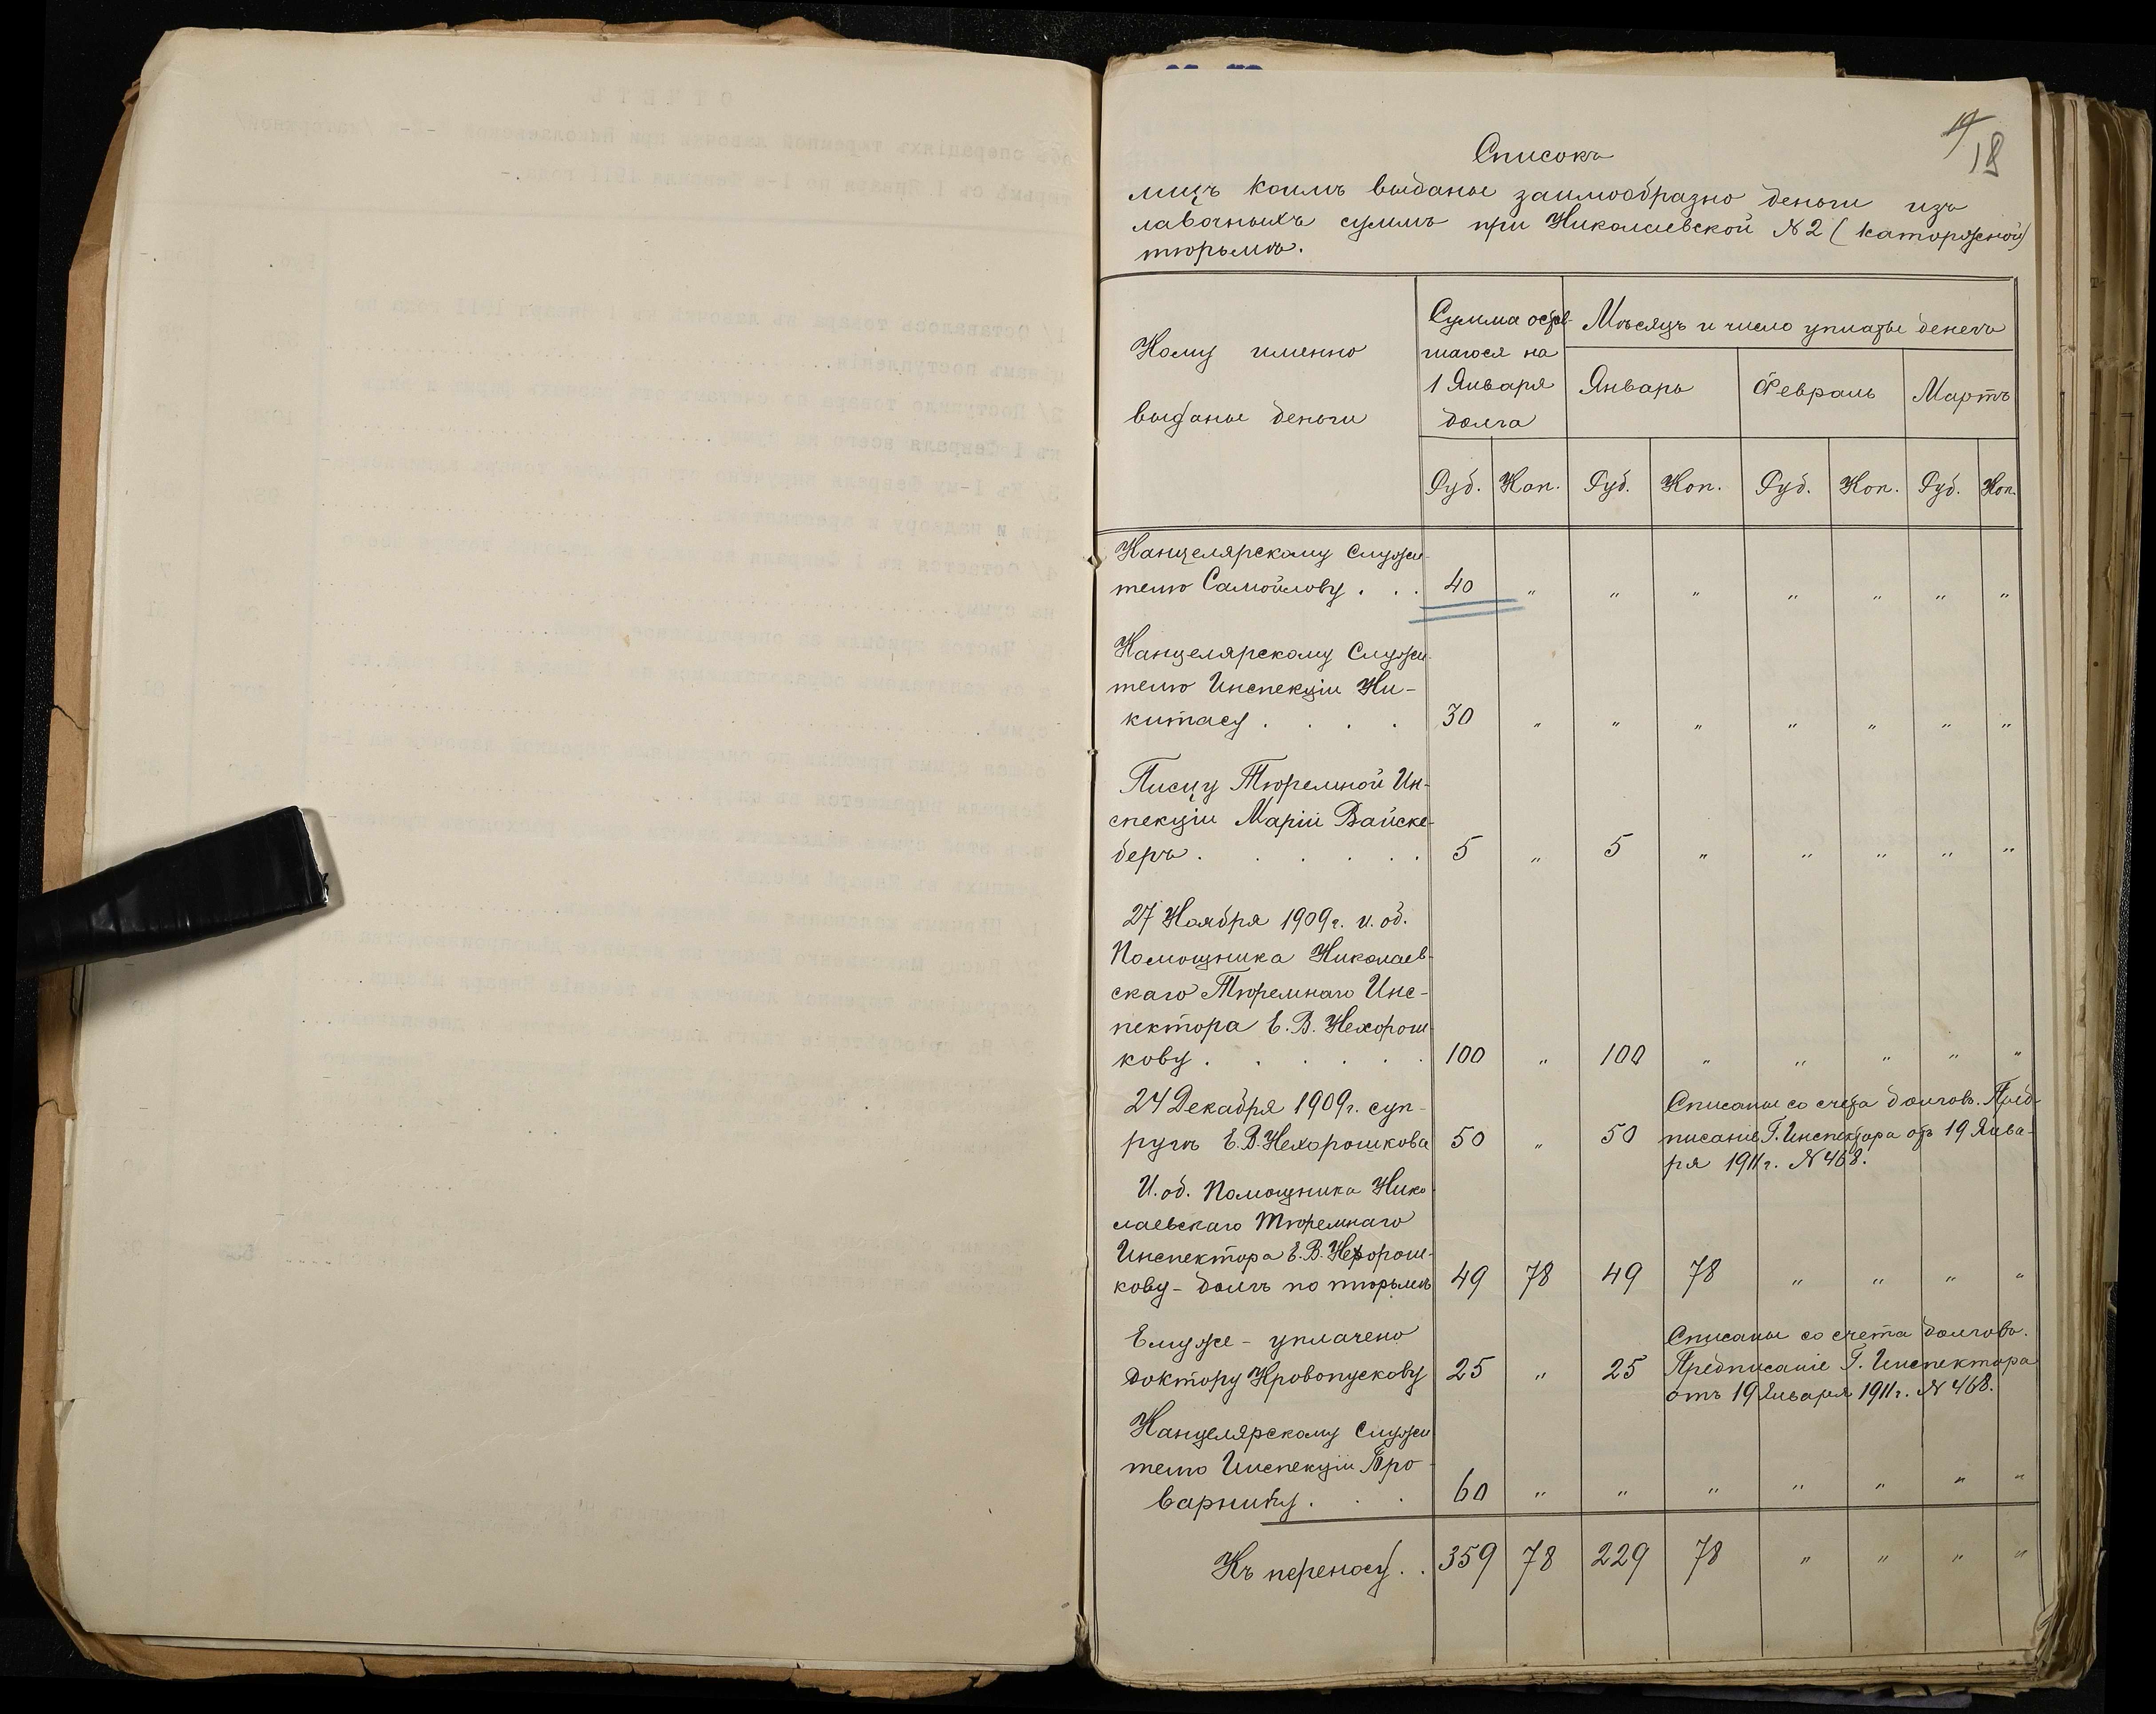 19
18
Списокъ
лицъ коимъ выданы заимообразно деньги изъ
лавочныхъ суммъ при Николаевской №2 (каторжной)
тюрьмѣ.
Кому именно
выданы деньги
Сумма остав-
шагося на
1 Января
долга
Мѣсяцъ и число уплаты денегъ
Январь Февраль Мартъ
Руб. Коп. Руб. Коп. Руб. Коп. Руб. Коп.
Канцелярскому Служи-
телю Самойлову . . . 40 " " " " " " "
Канцелярскому Служи-
телю Инспекціи Ни-
китасу . . . . 30 " " " " " " "
Писцу Тюремной Ин-
спекціи Маріи Вайске-
беръ . . . . . . 5 " 5 " " " " "
27 Ноября 1909г. и. об.
Помощника Николаев-
скаго Тюремнаго Инс-
пектора Е. В. Нехорош-
кову . . . . . . 100 " 100 " " " " "
24 Декабря 1909г. суп-
ругѣ Е.В. Нехорошкова 50 " 50
Списаны со счета долговъ. Пред-
писаніе Г. Инспектора отъ 19 Янва-
ря 1911г. №468.
И. об. Помощника Нико-
лаевскаго Тюремнаго
Инспектора Е. В. Нехорош-
кову - долгъ по тюрьмѣ 49 78 49 78 " " " "
Ему же - уплачено
доктору Кровопускову 25 " 25
Списаны со счета долговъ.
Предписаніе Г. Инспектора
отъ 19 Января 1911г. №468.
Канцелярскому Служи-
телю Инспекціи
60 " " " " " " "
Къ переносу . . 359 78 229 78 " " " "